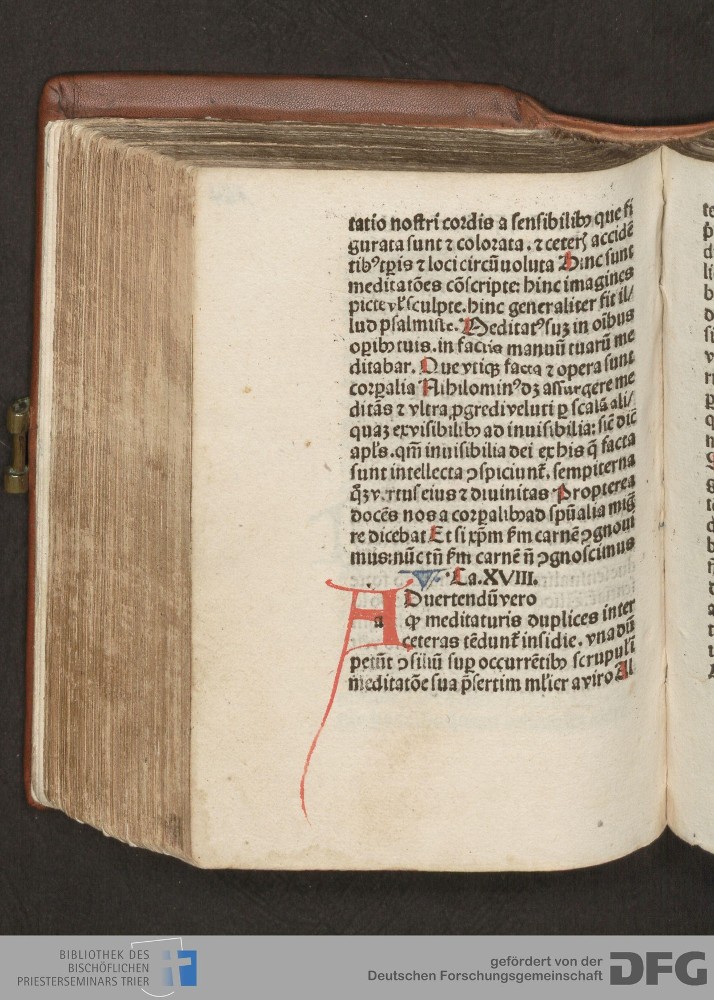 tatio noſtri cordis a ſenſibilibꝰ que fi
gurata ſunt ⁊ colorata. ⁊ ceterꝭ accidē
tibꝰ tꝑis ⁊ loci circūuoluta Hinc ſunt
meditatōes cōſcripte: hinc imagines
picte vꝉ ſculpte. hinc generaliter fit il/
lud pſalmiſte. Meditatꝰ ſuꝫ in oībus
oꝑibꝰ tuis. in factis manuū tuarū me
ditabar. Que vtiqꝫ facta ⁊ opera ſunt
corꝑalia Nihilominꝰ dꝫ aſſurgere me
ditās ⁊ vltra ꝓgredi veluti ꝑ ſcalā ali/
quaꝫ ex viſibilibꝰ ad inuiſibilia: ſic̄ dic̄
apl̄s. qm̄ inuiſibilia dei ex his q̄ facta
ſunt intellecta ꝯſpiciunt̄. ſempiterna
qꝫ virtus eius ⁊ diuinitas Propterea
docēs nos a corꝑalibꝰ ad ſpūalia mig̃
re dicebat Et ſi xp̄m ẜm carnē ꝯgnoui
mus: nūc tn̄ ẜm carnē n̄ ꝯgnoſcimus
Ca. XVIII.
ADuertendū vero
a ꝙ meditaturis duplices inter
ceteras tēdunt̄ inſidie. vna dū
petūt ꝯſiliū ſuꝑ occurrētibꝰ ſcrupuli
meditatōe ſua p̄ſertim ml̄ier a viro Al
BIBLIOTHEK DES
BISCHÖFLICHEN
PRIESTERSEMINARS TRIER
gefördert von der
Deutschen Forschungsgemeinschaft DFG